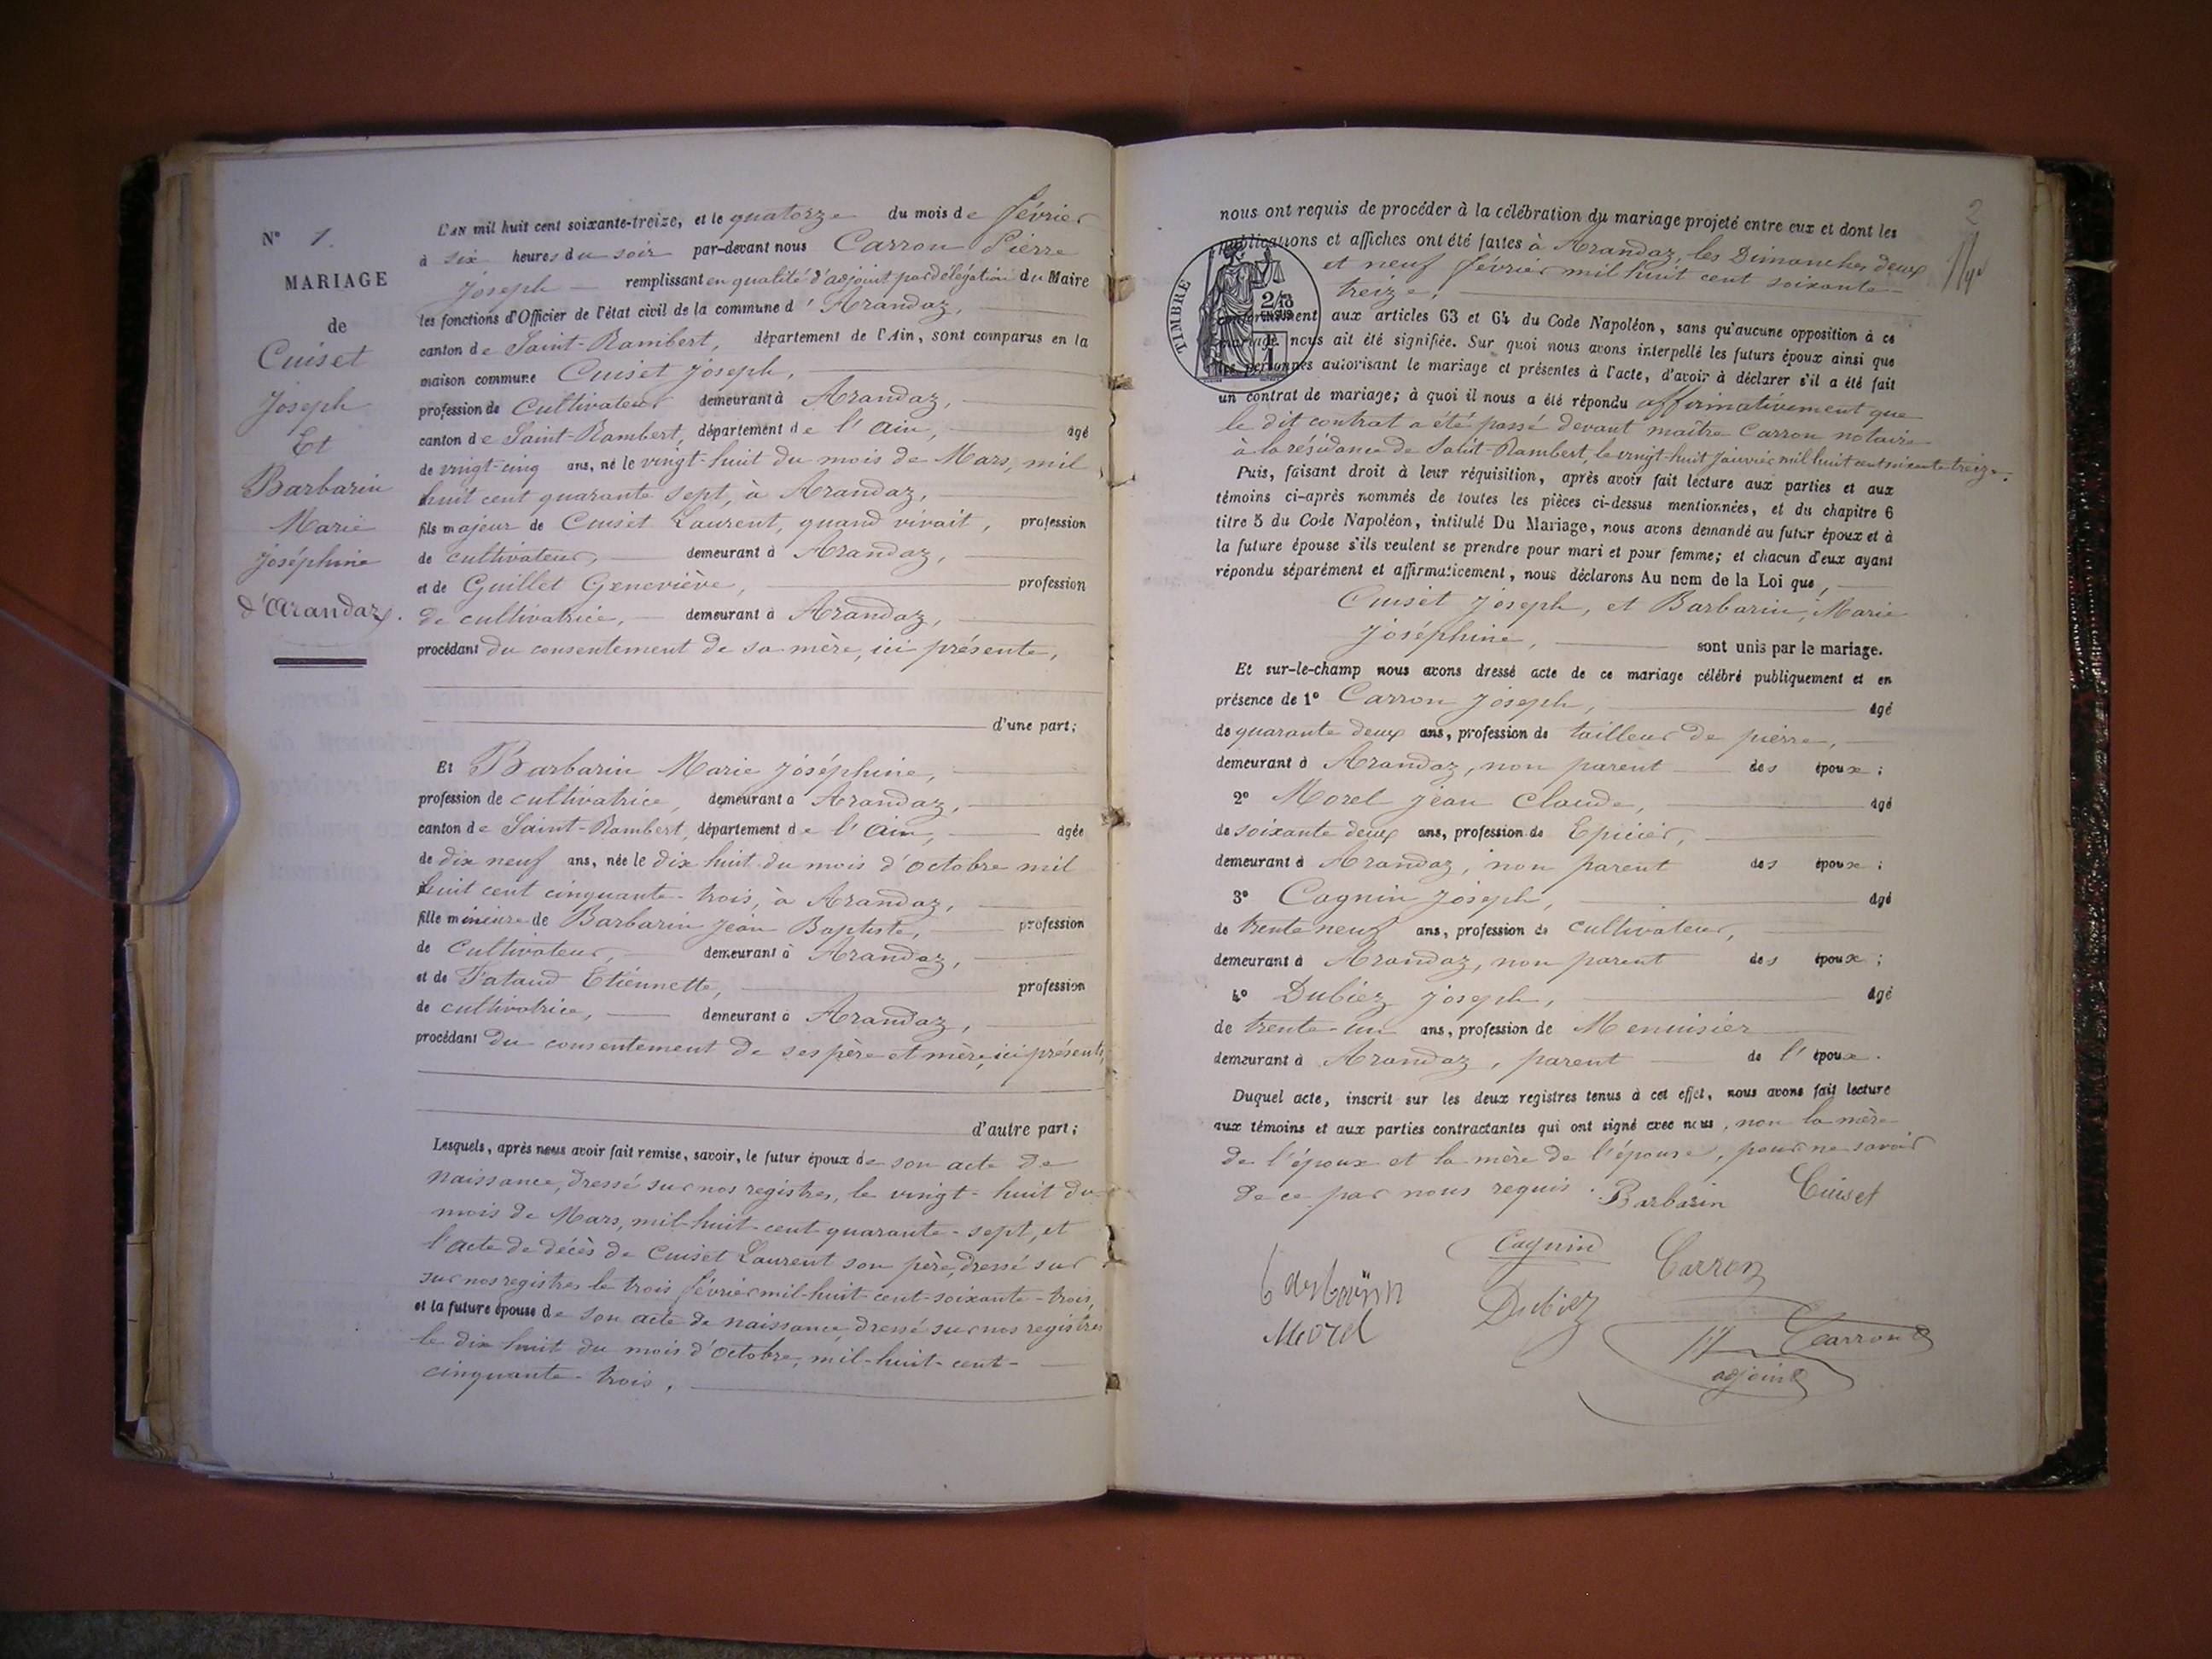 N° 1.
MARIAGE
de
Cuiset
Joseph
Et
Barbarin
Marie
Joséphine
d'Arandaz.
L'AN mil huit cent soixante-treize, et le quatorze du mois de février
à six heures du soir par-devant nous Carron Pierre
Joseph remplissant en qualité d'adjoint par délégation du Maire
les fonctions d'Officier de l'état civil de la commune d'Arandaz,
canton de Saint-Rambert, département de l'Ain, sont comparus en la
maison commune Cuiset Joseph,
profession de Cultivateur demeurant à Arandaz,
canton de Saint-Rambert, département de l'Ain, âgé
de vingt-cinq ans, né le vingt-huit du mois de Mars, mil
huit cent quarante sept, à Arandaz,
fils majeur de Cuiset Laurent, quand vivait, profession
de cultivateur, demeurant à Arandaz,
et de Guillet Geneviève, profession
de cultivatrice, demeurant à Arandaz,
procédant du consentement de sa mère, ici présente,
d'une part;
Et Barbarin Marie Joséphine,
profession de cultivatrice, demeurant à Arandaz,
canton de Saint-Rambert, département de l'Ain, âgée
de dix neuf ans, née le dix huit du mois d'octobre mil
huit cent cinquante-trois, à Arandaz,
fille mineure de Barbarin Jean Baptiste, profession
de Cultivateur, demeurant à Arandaz,
et de Pataud Etiennette, profession
de cultivatrice, demeurant à Arandaz,
procédant du consentement de ses père et mère, ici présents,
d'autre part;
Lesquels, après nous avoir fait remise, savoir, le futur époux de son acte de
naissance, dressé sur nos registres, le vingt-huit du
mois de Mars, mil-huit-cent-quarante-sept, et
l'acte de décès de Cuiset Laurent son père, dressé sur
sur nos registres le trois février mil-huit-cent-soixante-trois,
et la future épouse de son acte de naissance dressé sur nos registres
le dix huit du mois d'octobre, mil-huit-cent-
cinquante-trois,
2
nous ont requis de procéder à la célébration du mariage projeté entre eux et dont les
publications et affiches ont été faites à Arandaz, les Dimanches deux
et neuf février mil huit cent soixante-
treize,
TIMBRE
conformément aux articles 63 et 64 du Code Napoléon, sans qu'aucune opposition à ce
mariage nous ait été signifiée. Sur quoi nous avons interpellé les futurs époux ainsi que
les personnes autorisant le mariage et présentes à l'acte, d'avoir à déclarer s'il a été fait
un contrat de mariage; à quoi il nous a été répondu affirmativement que
le dit contrat a été passé devant maître Carron notaire
à la résidence de Saint-Rambert, le vingt-huit Janvier mil huit cent soixante treize.
Puis, faisant droit à leur réquisition, après avoir fait lecture aux parties et aux
témoins ci-après nommés de toutes les pièces ci-dessus mentionnées, et du chapitre 6
titre 5 du Code Napoléon, intitulé Du Mariage, nous avons demandé au futur époux et à
la future épouse s'ils veulent se prendre pour mari et pour femme; et chacun d'eux ayant
répondu séparément et affirmativement, nous déclarons Au nom de la Loi que,
Cuiset Joseph, et Barbarin, Marie
Joséphine, sont unis par le mariage.
Et sur-le-champ nous avons dressé acte de ce mariage célébré publiquement et en
présence de 1° Carron Joseph, âgé
de quarante deux ans, profession de tailleur de pierre,
demeurant à Arandaz, non parent des époux;
2° Morel Jean Claude, âgé
de soixante deux ans, profession de Epicier,
demeurant à Arandaz, non parent des époux;
3° Cagnin Joseph, âgé
de trente neuf ans, profession de cultivateur,
demeurant à Arandaz, non parent des époux;
4° Dubiez Joseph, âgé
de trente-un ans, profession de Menuisier
demeurant à Arandaz, parent de l'époux.
Duquel acte, inscrit sur les deux registres tenus à cet effet, nous avons fait lecture
aux témoins et aux parties contractantes qui ont signé avec nous, non la mère
de l'époux et la mère de l'épouse, pour ne savoir
de ce par nous requis. Barbarin Cuiset
Cagnin Carron
barbarin Dubiez
Morel
Carron
adjoint